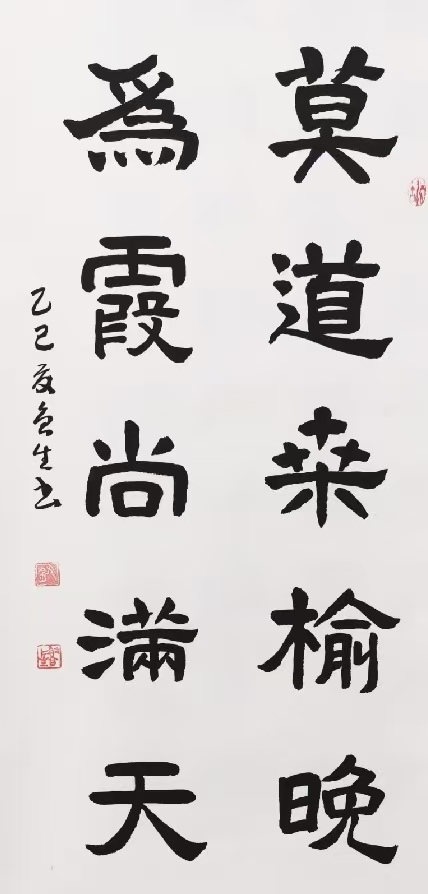 莫道桒榆晚
爲霞尚滿天
乙巳夏

生书